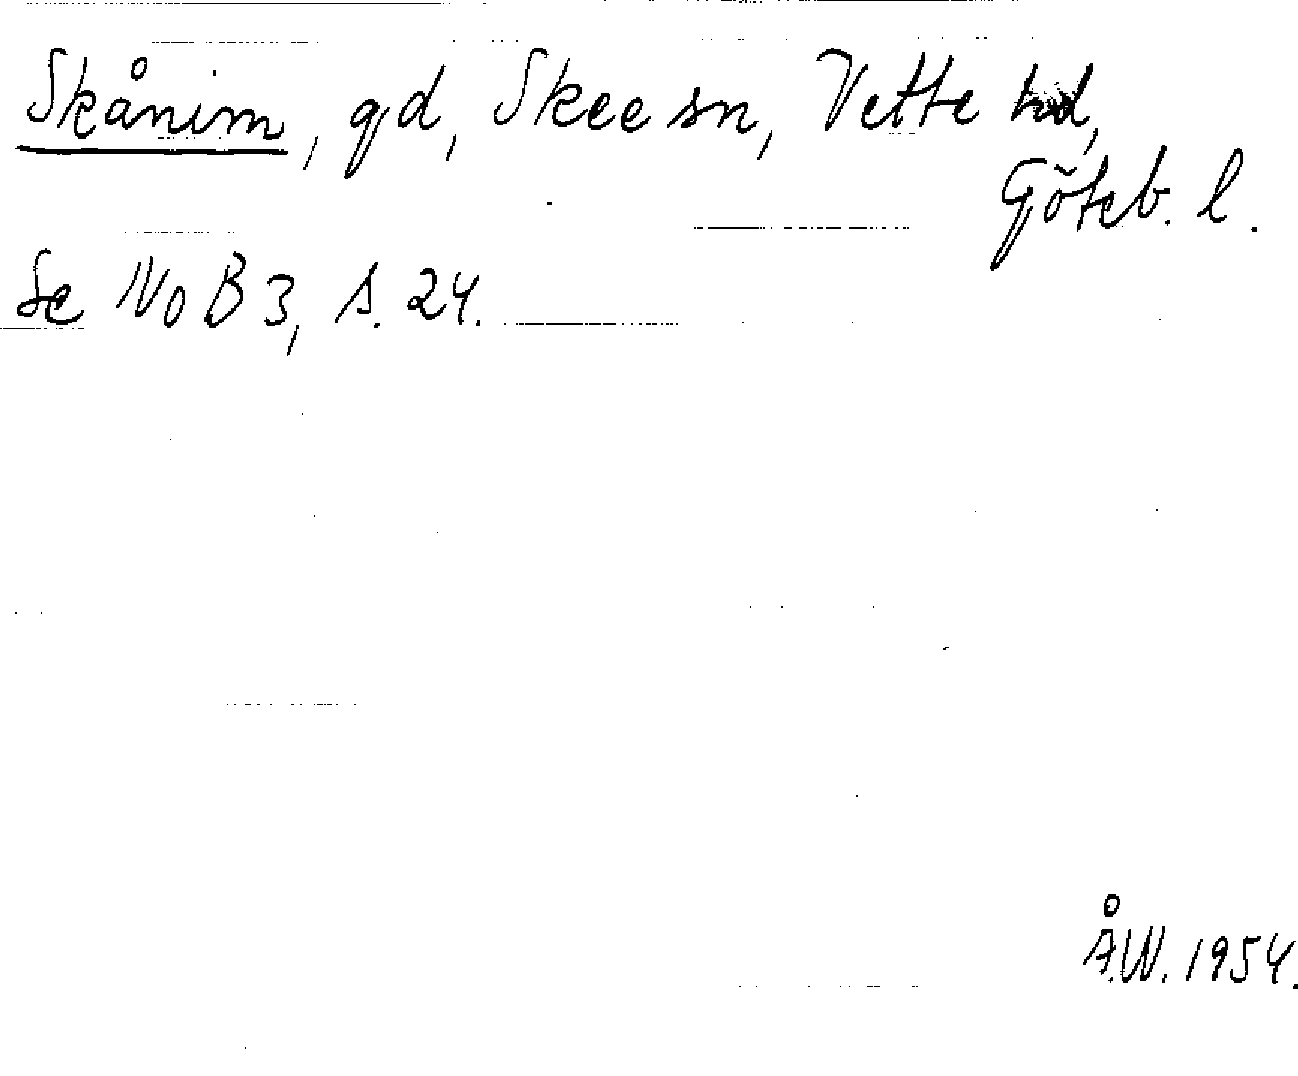 Skånim, gd, Skee sn, Vette hd,
Göteb. l.
Se NoB 3, s. 24.
Å.W. 1954.